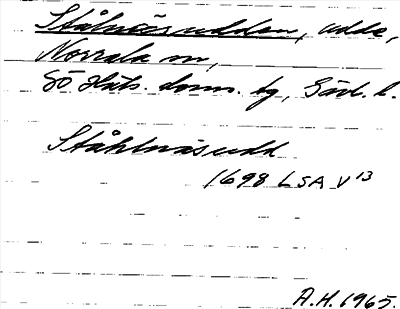 Stålnäsudden, udde,
Norrala sn,
SÖ Häls. doms. tg, Gävl. l.
Ståhlnäsudd
1698 LSA V 13
A.H. 1965.